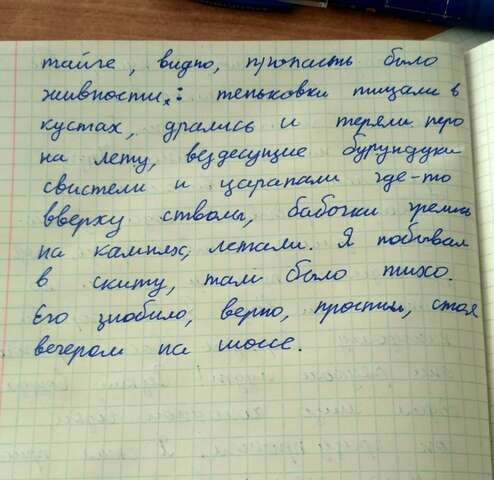 тайге, видно, пропасть было
живности,: теньковки пищали в
кустах, дрались и теряли перо
на лету, вездесущие бурундуки
свистели и царапали где-то
вверху стволы, бабочки грелись
на камнях, летали. Я побывал
в скиту, там было тихо.
Его знобило, верно, простыл, стоя
вечером на шоссе.